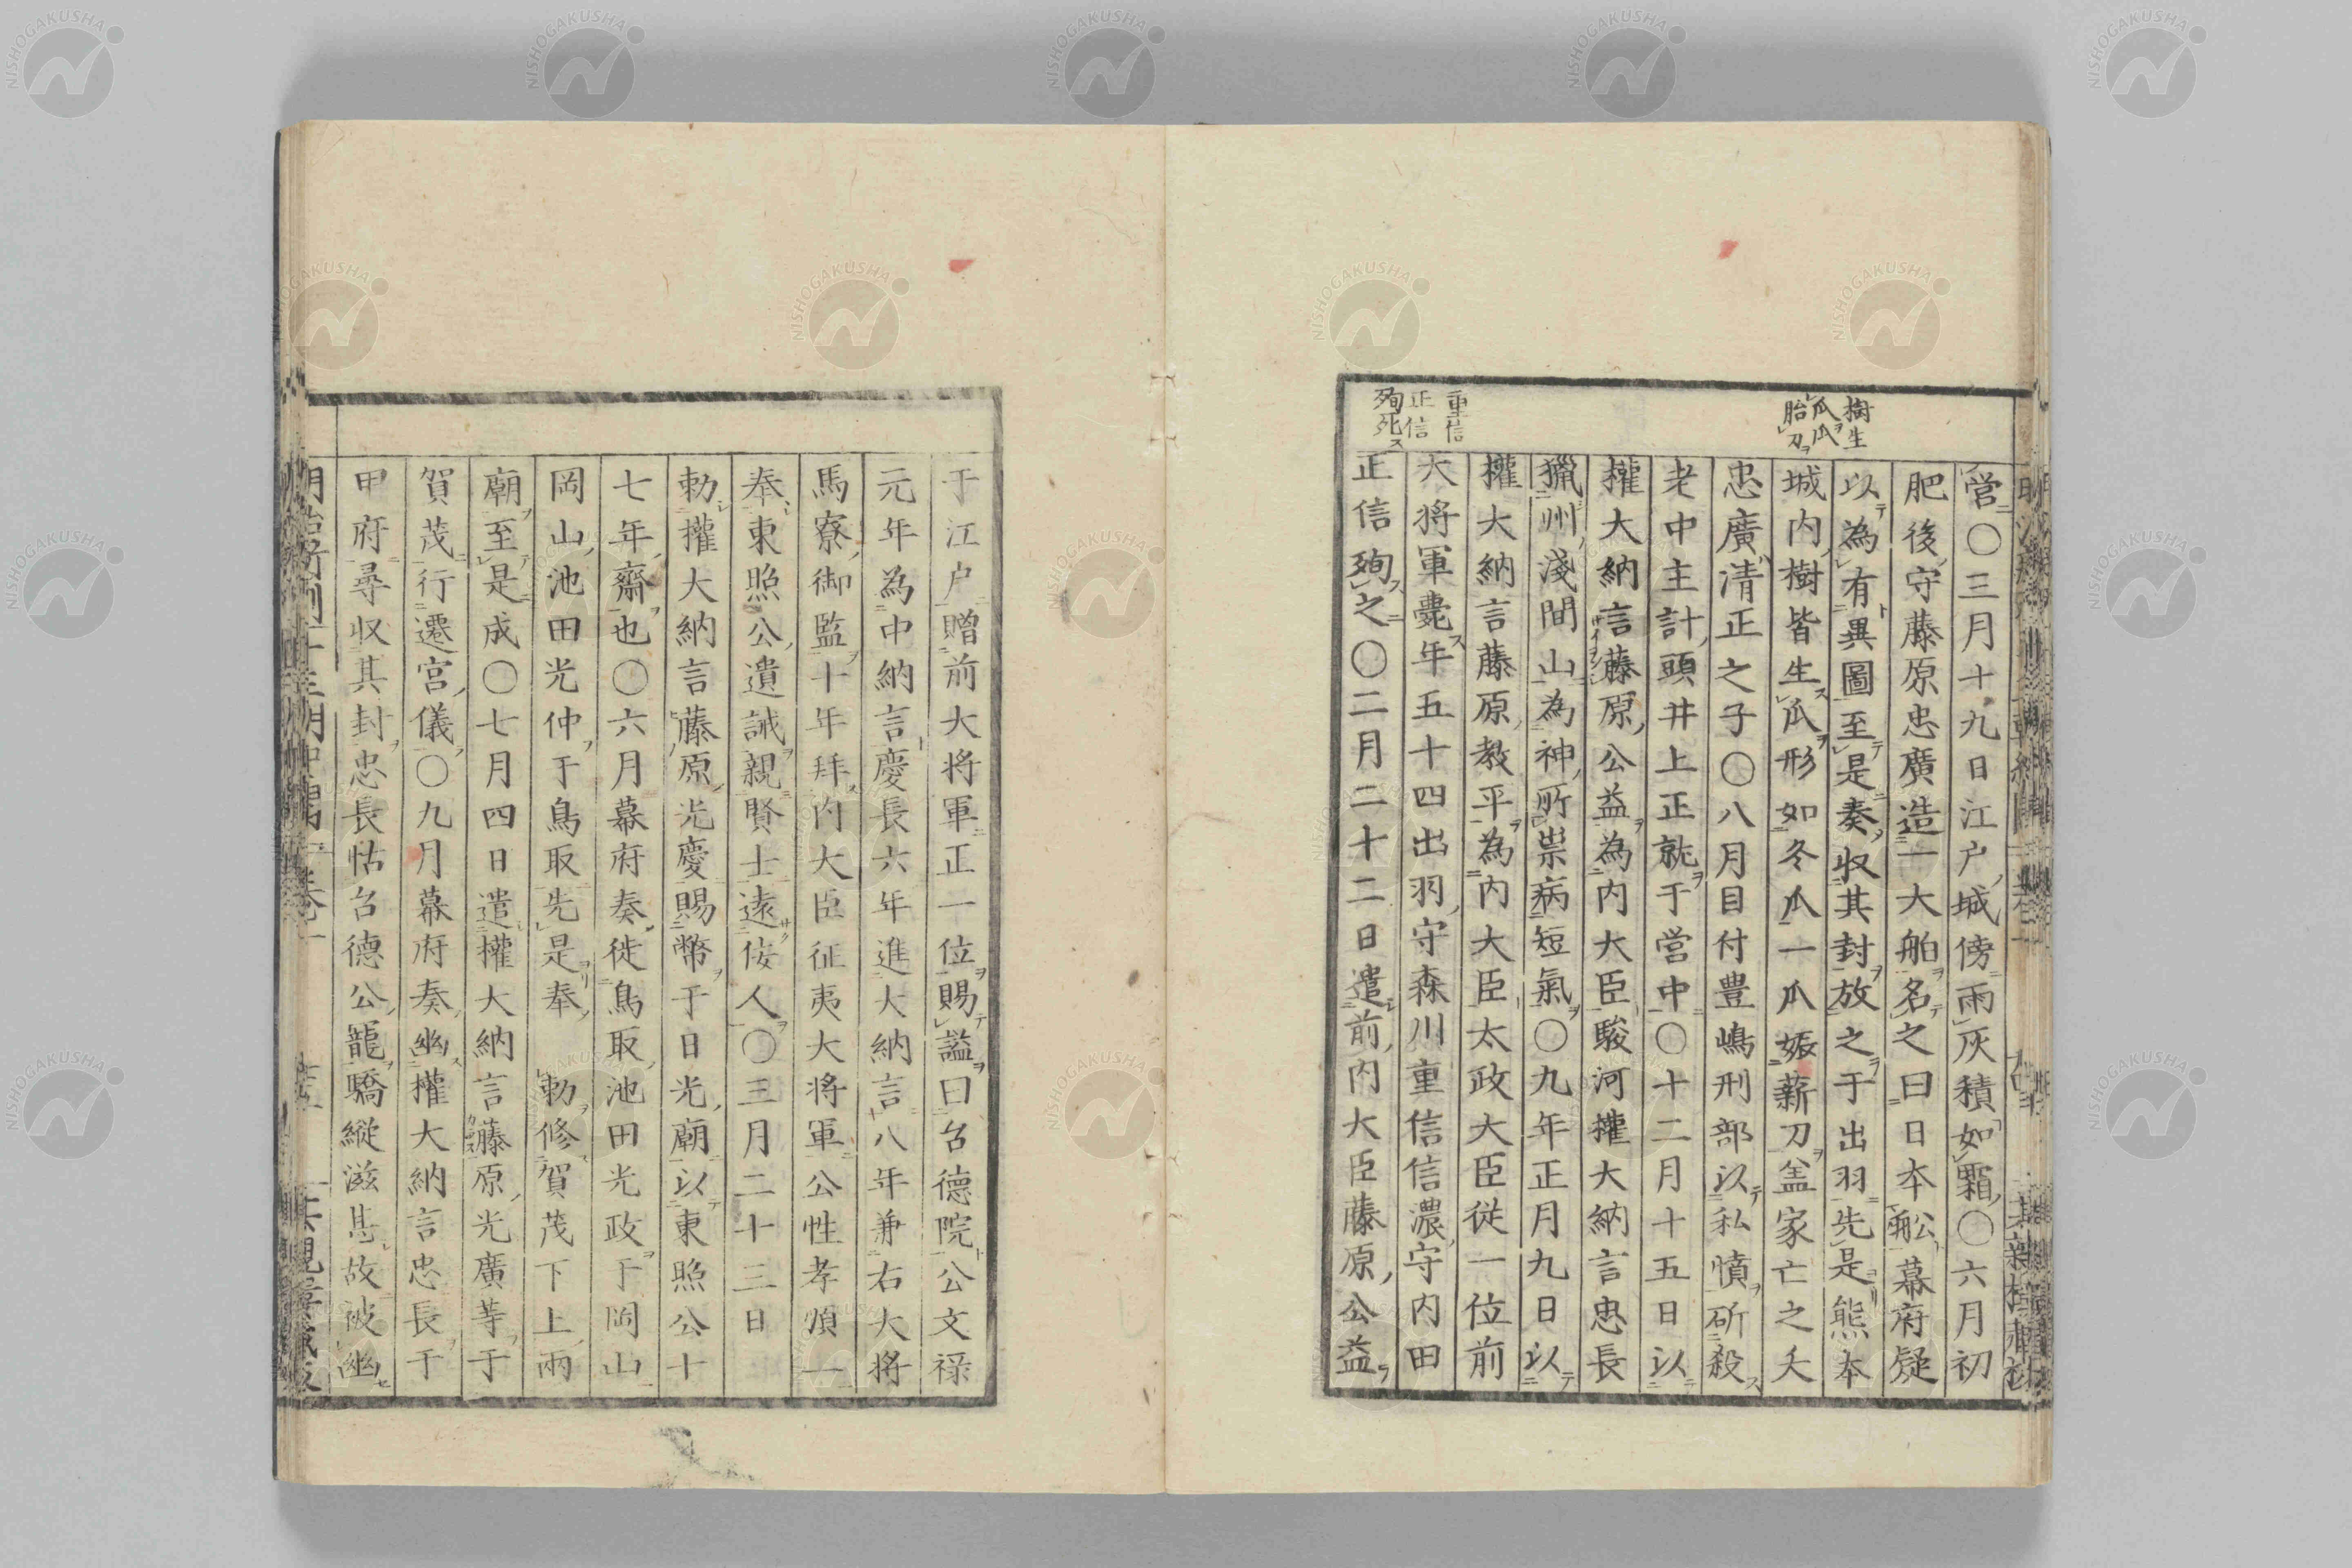 樹生
瓜瓜
胎刀
重信
正信
殉死ス
営〇三月十九日江戸城傍雨灰積如霜〇六月初
肥後守藤原忠廣造一大舶名之曰日本舩幕府疑
以為有異圖至是奏収其封放之于出羽先是熊本
城内樹皆生瓜形如冬瓜一瓜娠薪刀盖家亡之夭
忠廣清正之子〇八月目付豊嶋刑部以私憤斫殺
老中主計頭井上正就于営中〇十二月十五日以
權大納言藤原公益為内大臣駿河權大納言忠長
獵州淺間山為神所祟病短氣〇九年正月九日以
權大納言藤原教平為内大臣太政大臣従一位前
大将軍薨年五十四出羽守森川重信信濃守内田
正信殉之〇二月二十二日遣前内大臣藤原公益
于江户贈前大将軍正一位賜謚曰台德院公文禄
元年為中納言慶長六年進大納言八年兼右大将
馬寮御監十年拜内大臣征夷大将軍公性孝順一
奉東照公遺誡親賢士遠侫人〇三月二十三日
勅權大納言藤原光慶賜幣于日光廟以東照公十
七年齋也〇六月幕府奏徙鳥取池田光政于岡山
岡山池田光仲于鳥取先是奉勅修賀茂下上兩
廟至是成〇七月四日遣權大納言藤原光廣等于
賀茂行遷宮儀〇九月幕府奏幽權大納言忠長于
甲府尋収其封忠長怙台德公寵驕縦滋甚故被幽